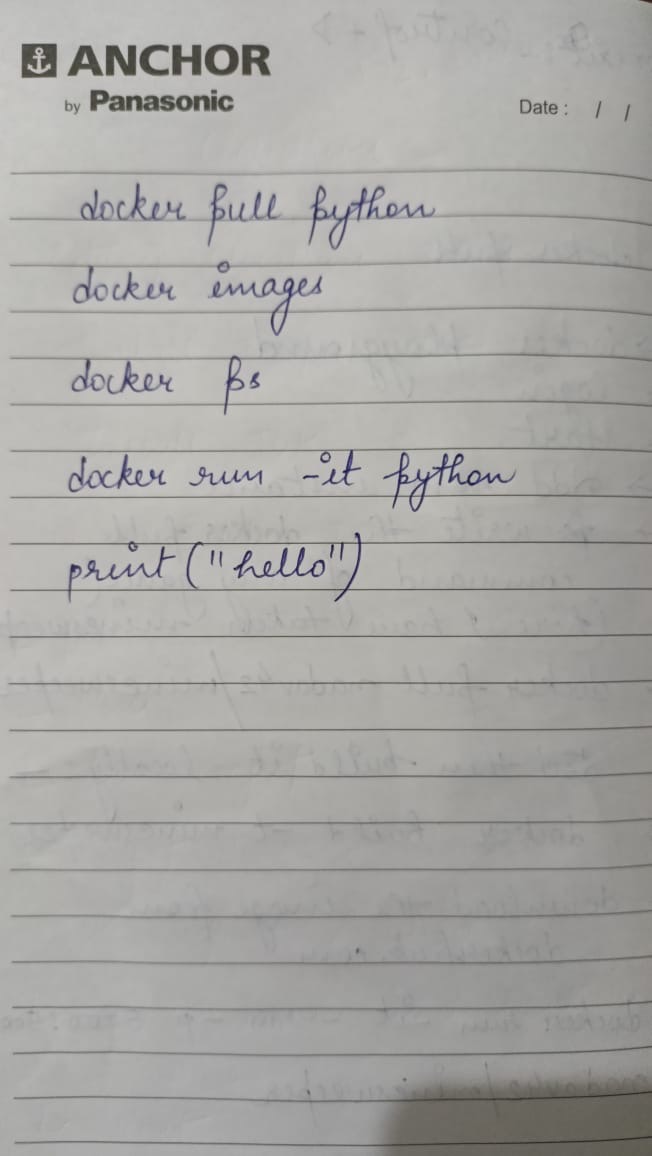 ANCHOR
by Panasonic
Date : / /
docker pull python
docker images
docker ps
docker run -it python
print("hello")